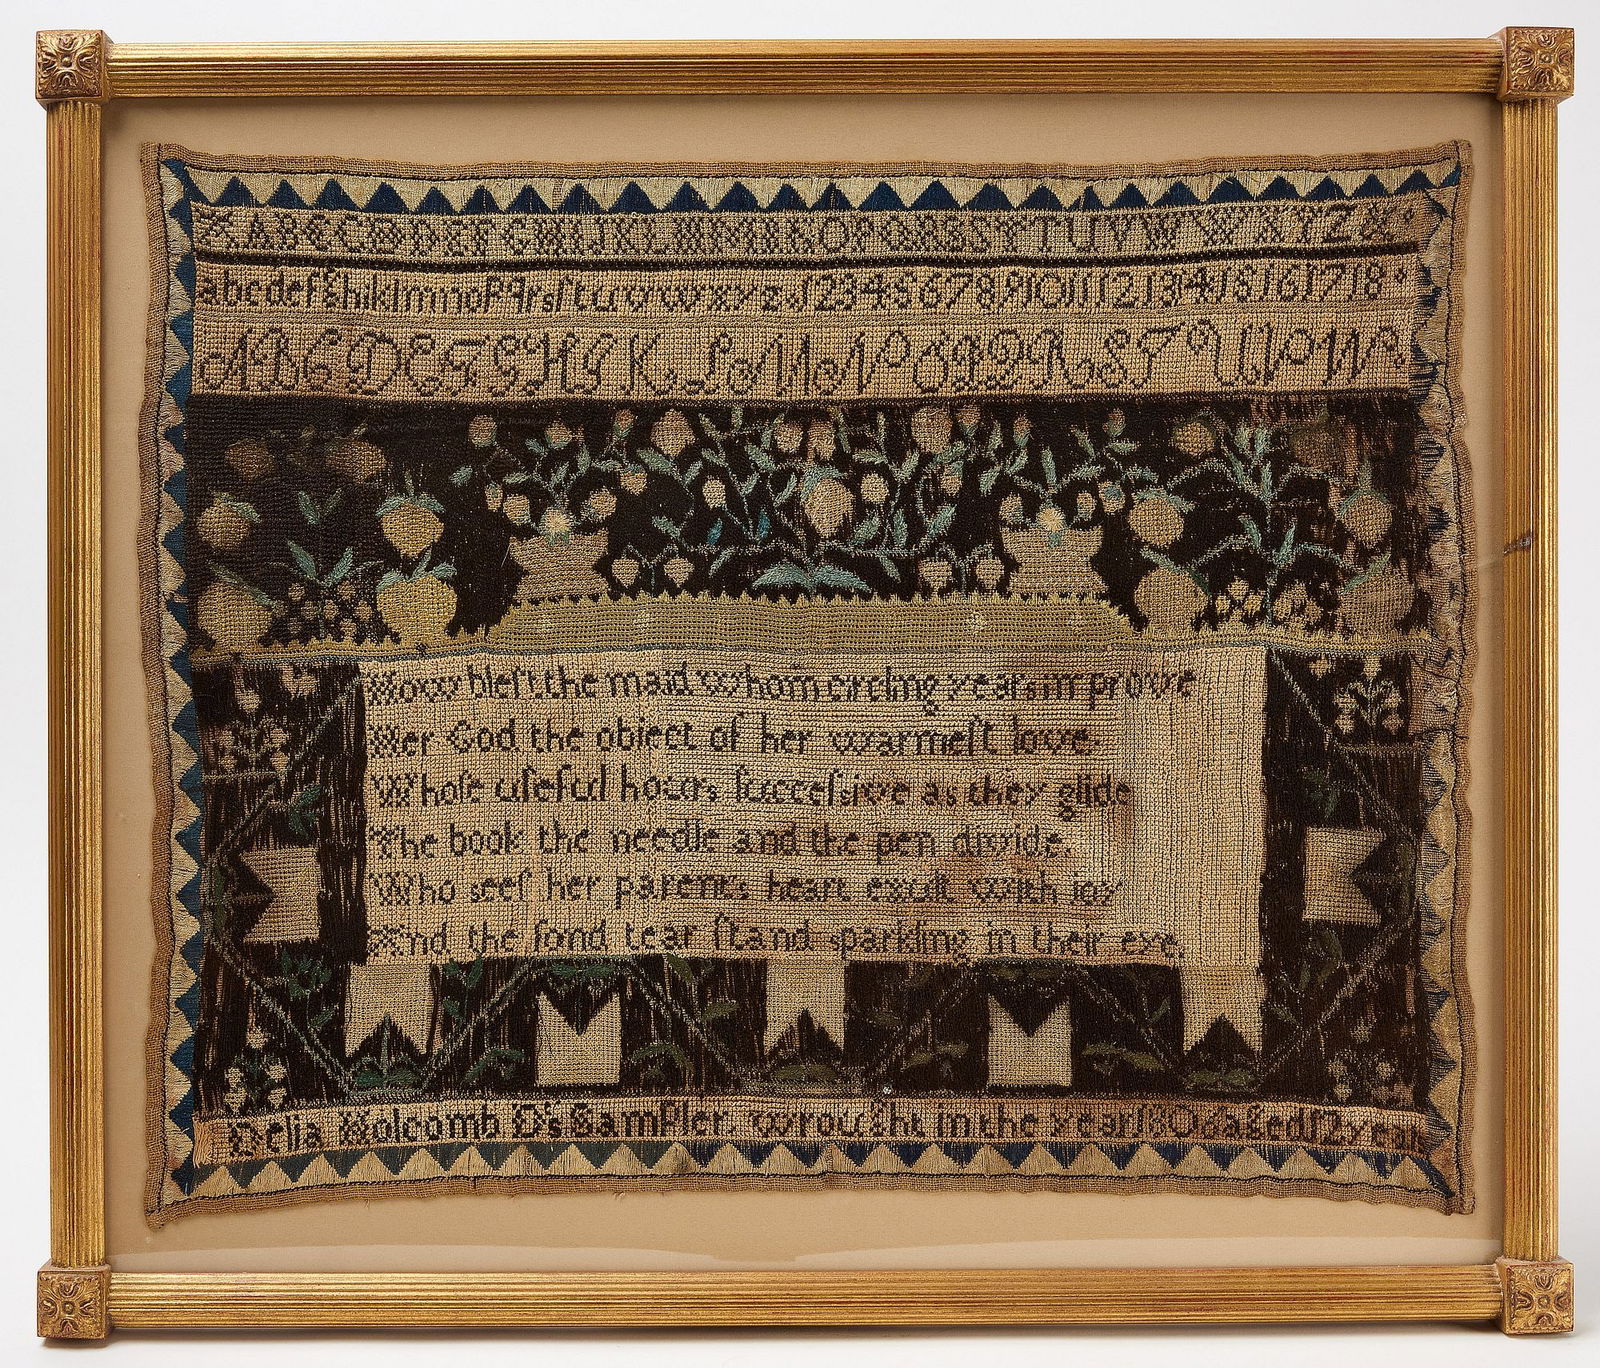 ABCDEFGHIJKLMNOPQRSTUVWXYZ&
abcdefghiklmnopqrsſtuvwxyz 123456789101112131415161718
ABCDEFGHIKLMNOPQRSTUVW
How bleſt the maid whom circling years improve
Her God the obiect of her warmeſt love
Whoſe uſeful hours ſucceſsive as they glide
The book the needle and the pen divide.
Who seeſ her parents heart exult with ioy
And the fond tear ſtand sparkling in their eye.
Delia Holcomb D's Sampler. Wrought in the year aged 12 years